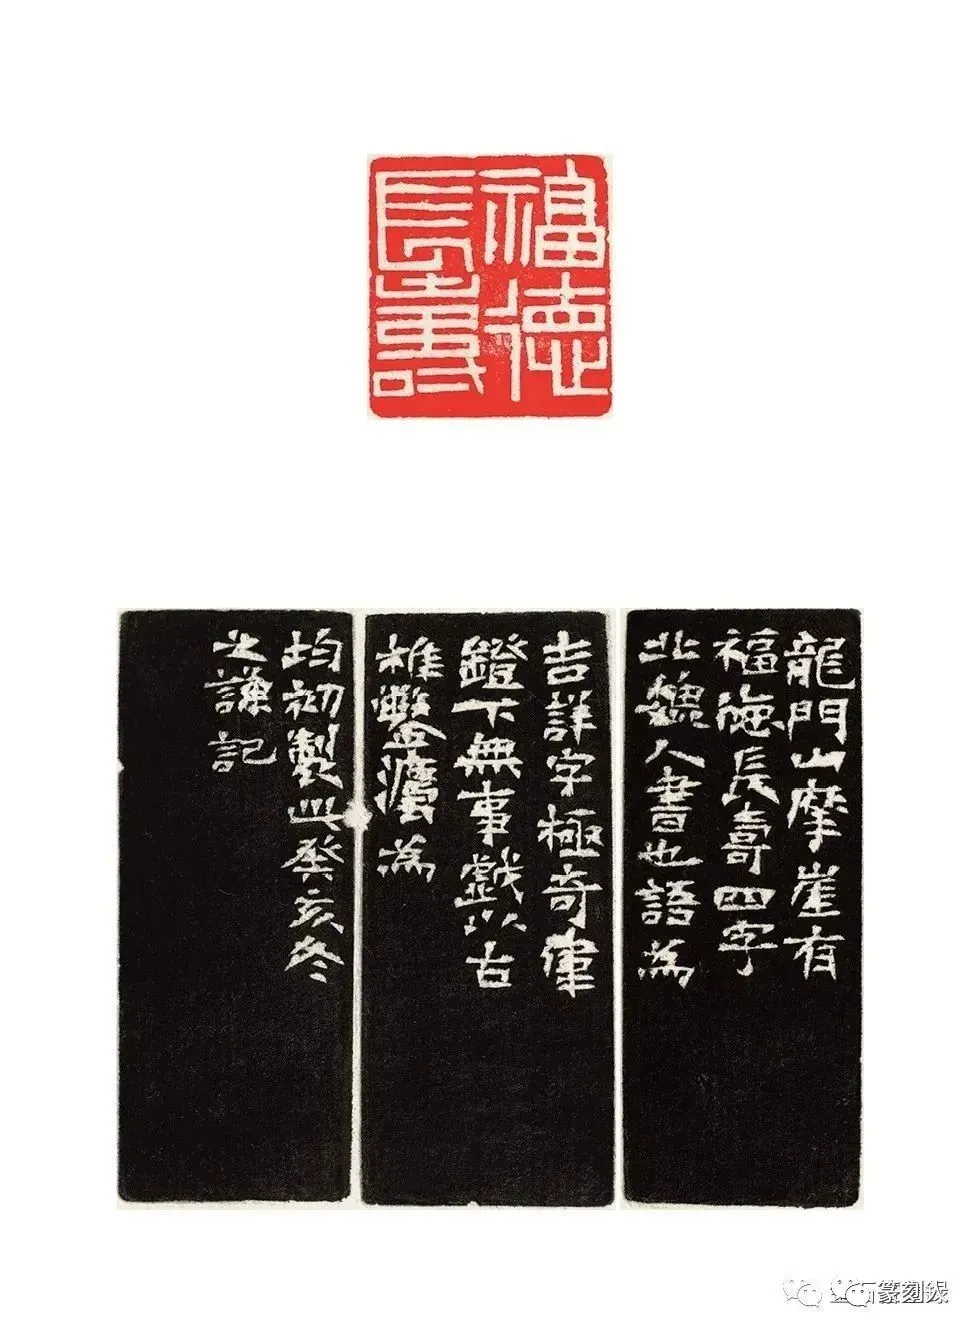 福德
長壽
龍門山摩崖有
福德長壽四字
北魏人書也語為
吉詳字極奇偉
鐙下無事戲以古
椎鑿灋為
均初製此癸亥冬
之謙記
篆刻録